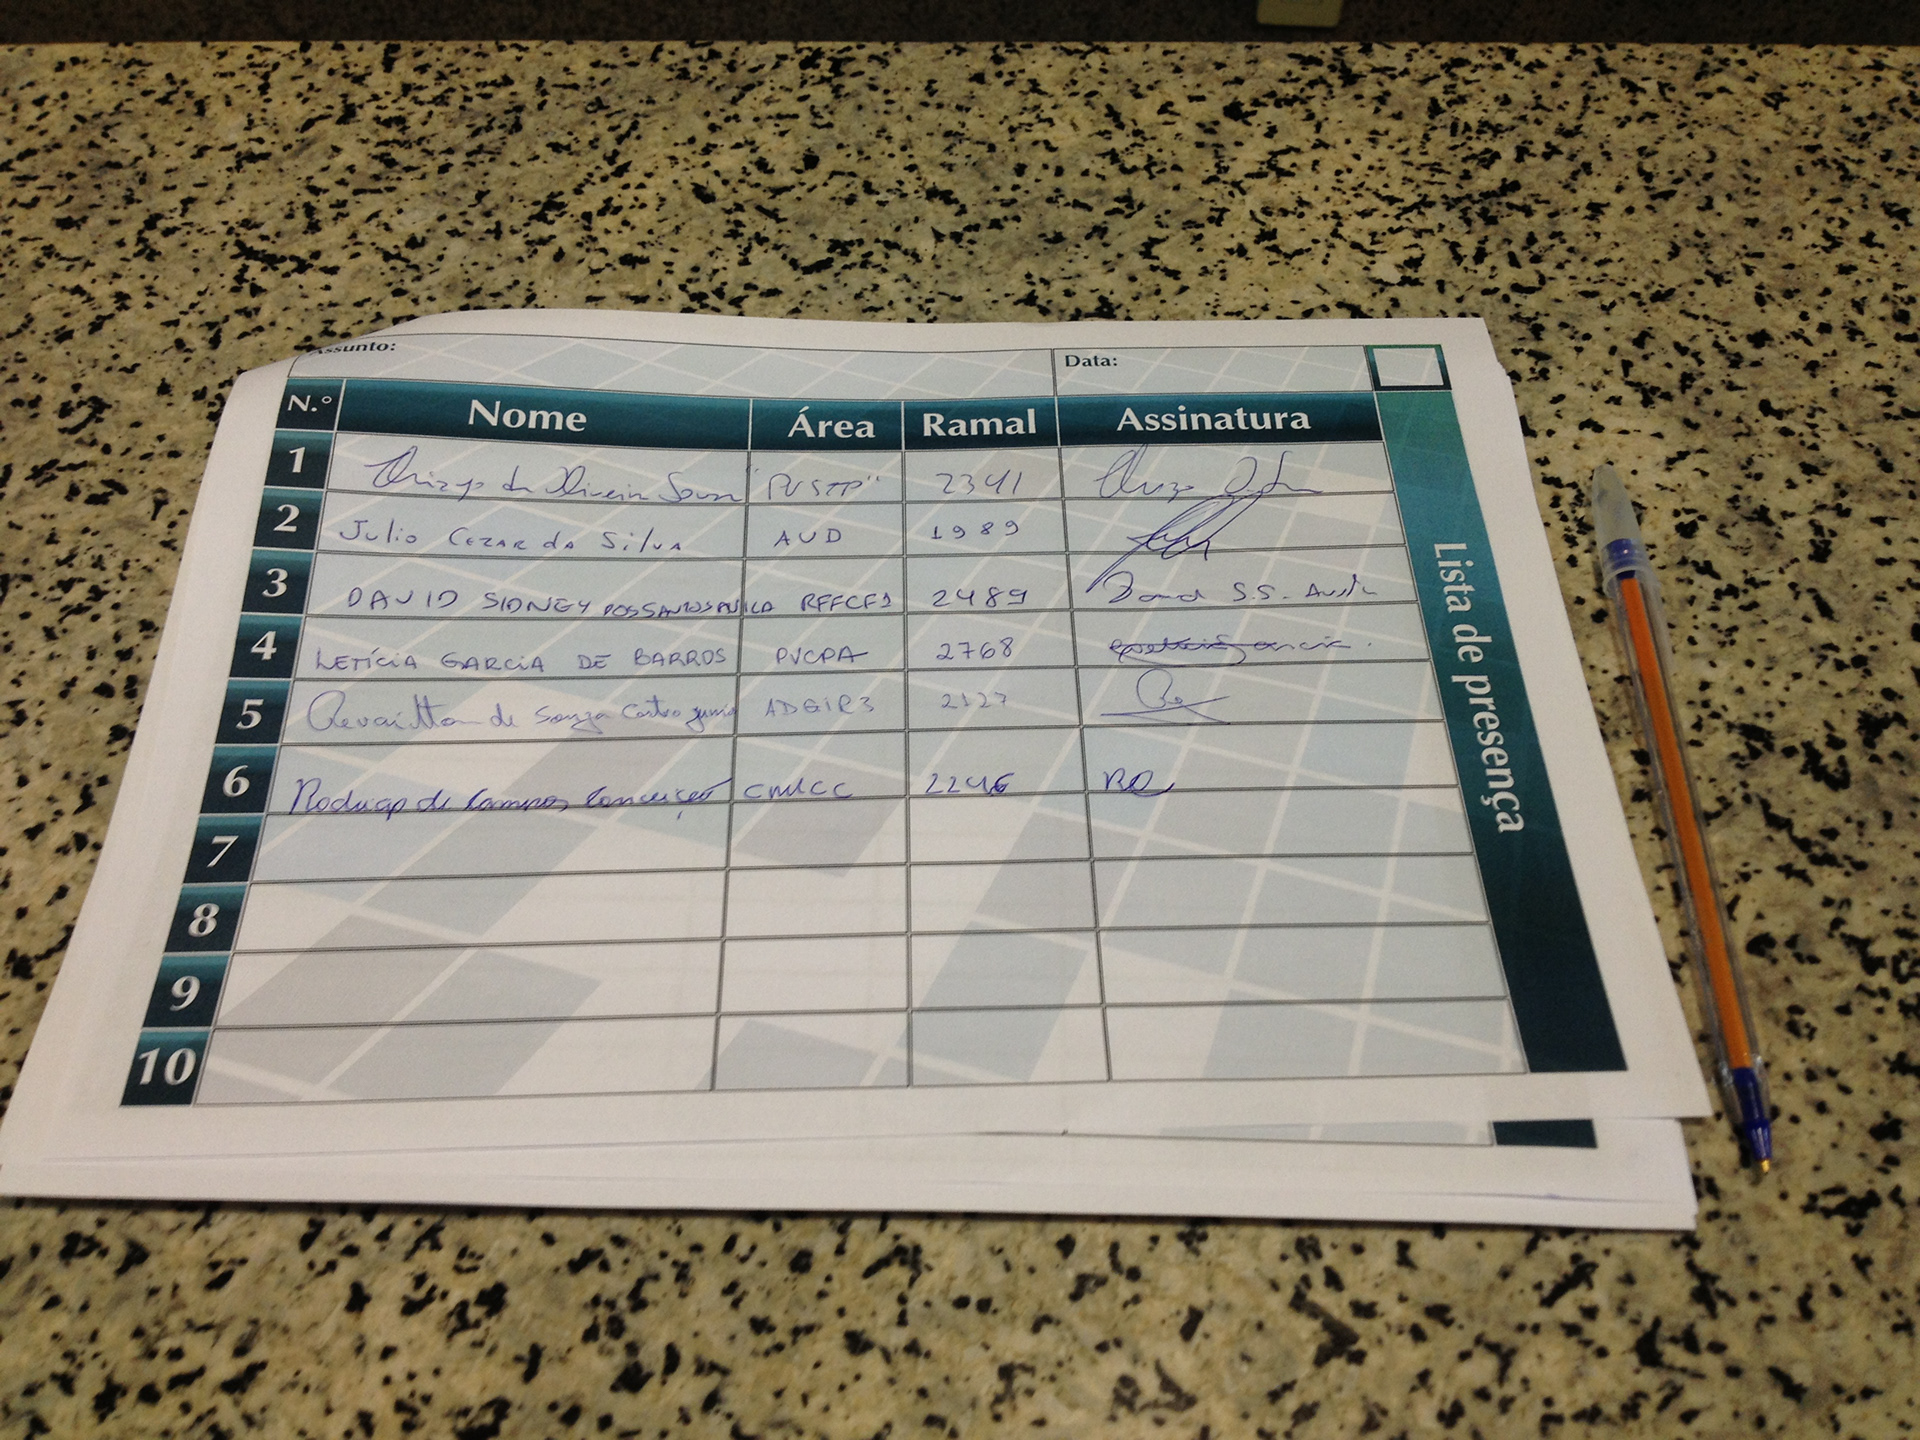 Assunto: Data:
N.° Nome Área Ramal Assinatura
1 Thiago de Oliveira Sousa 2341
2 Julio Cezar da Silva AUD 1989
3 DAVID SIDNEY DOS SANTOS RFFCF1 2489 David S.S.
4 LETÍCIA GARCIA DE BARROS PVCPA 2768
5 de Souza Castro Junior ADGIR3 2127
6 Rodrigo de Campos Conceição CMICC 2246
7
8
9
10
Lista de presença